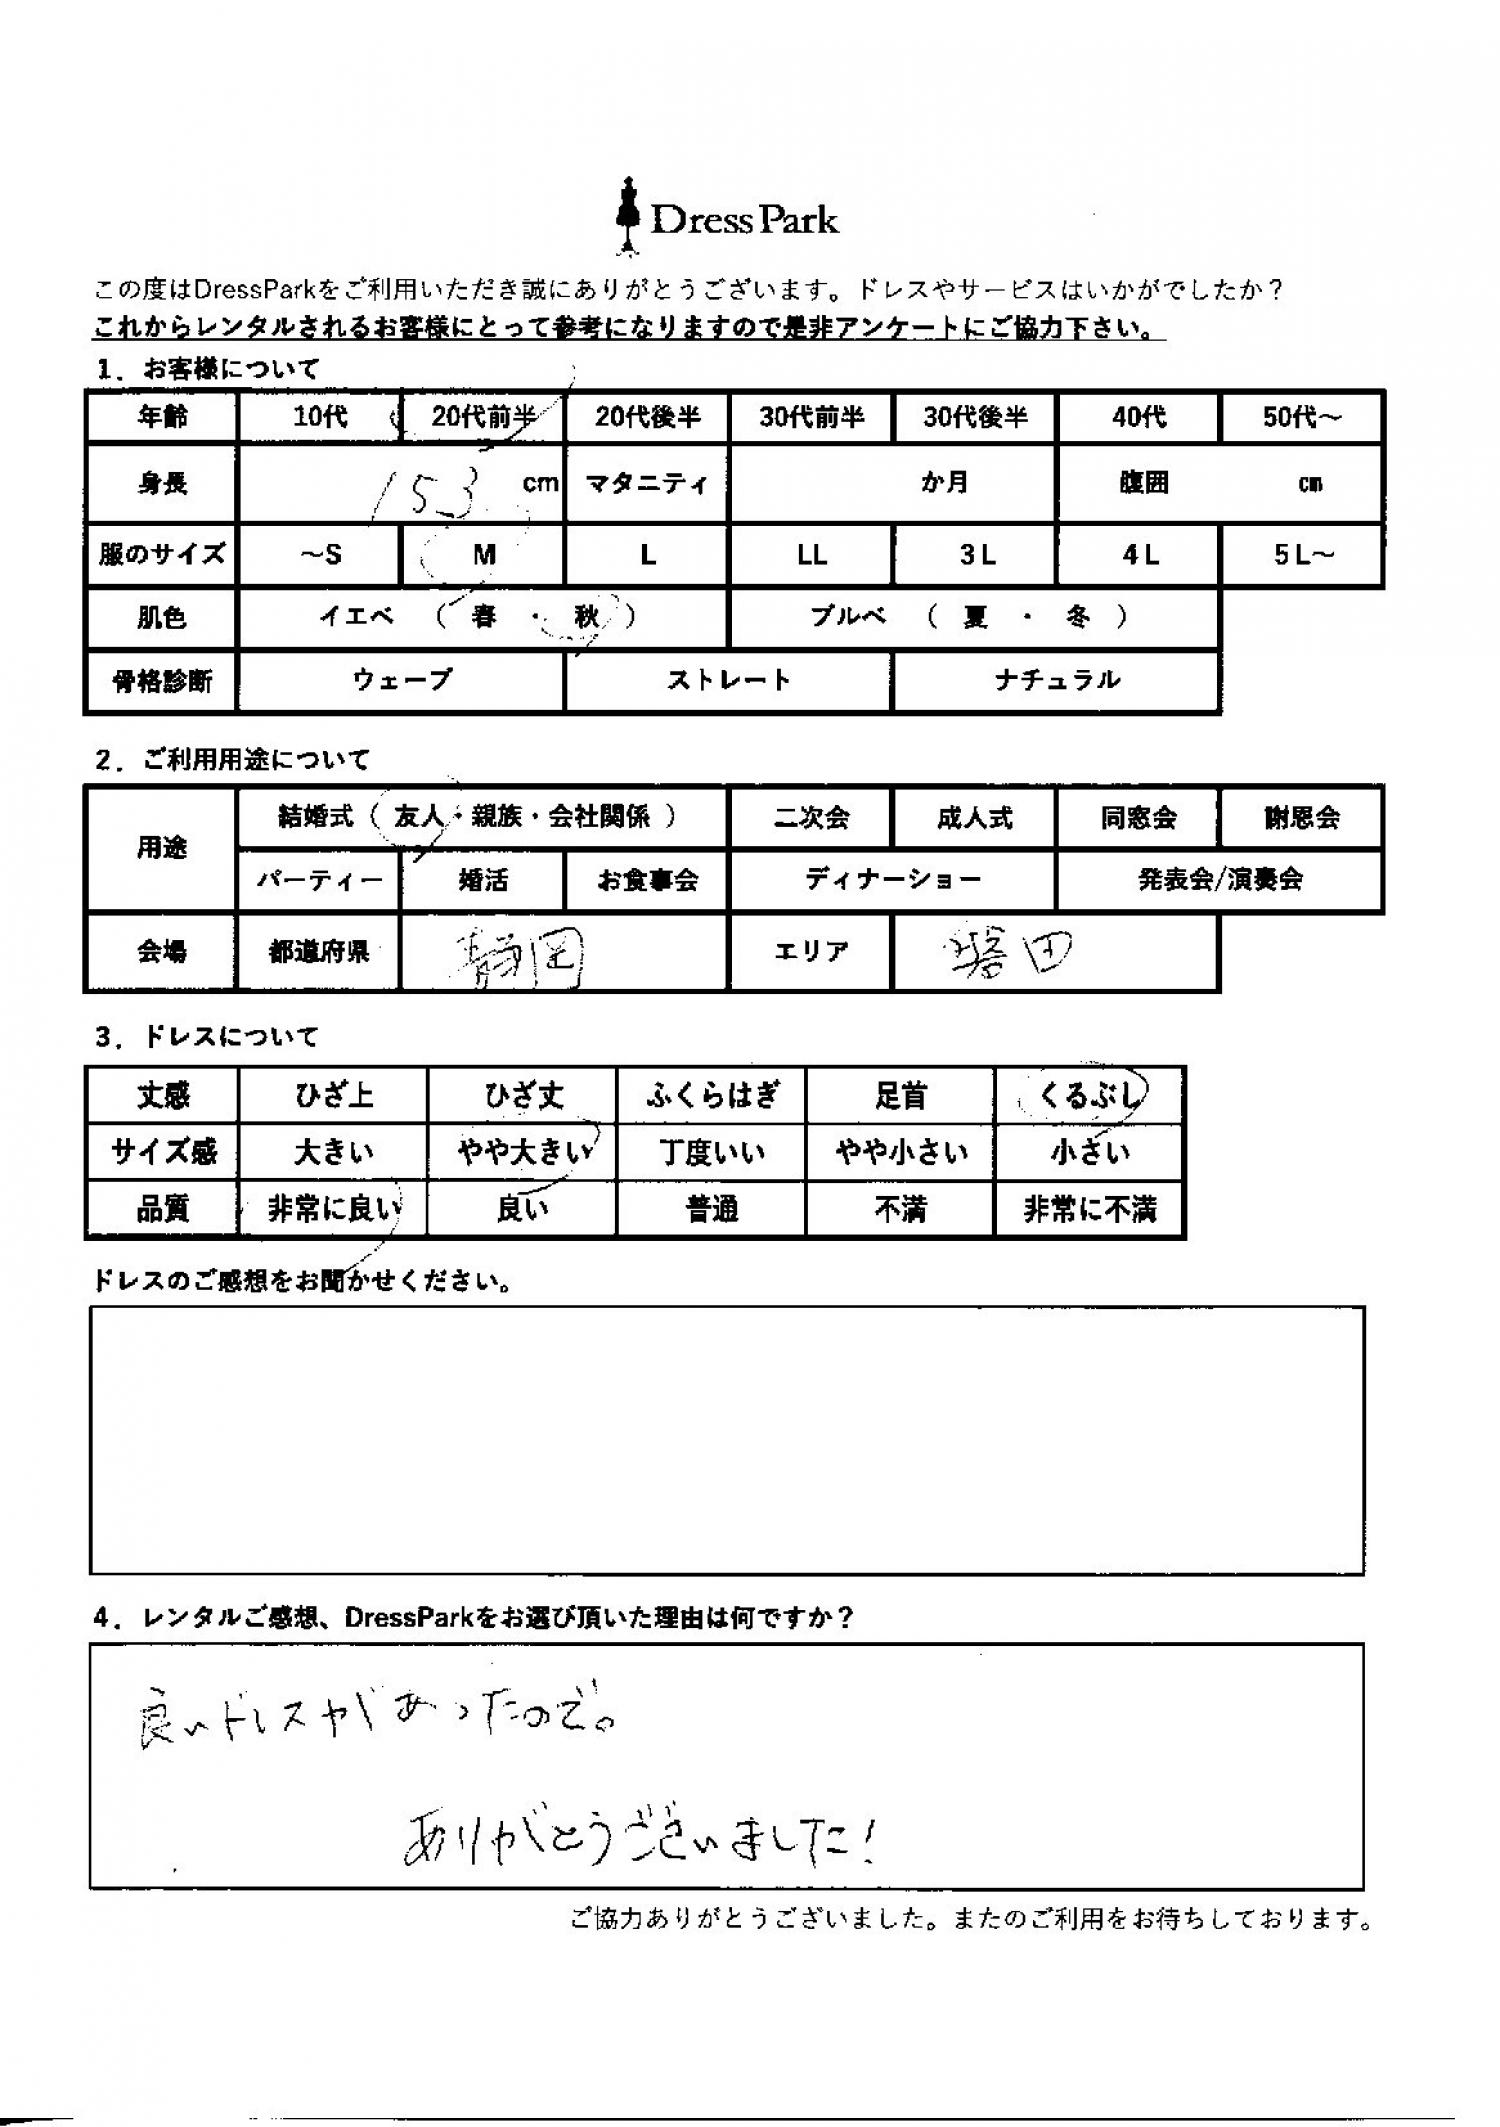 Dress Park
この度はDressParkをご利用いただき誠にありがとうございます。ドレスやサービスはいかがでしたか？
これからレンタルされるお客様にとって参考になりますので是非アンケートにご協力下さい。
1．お客様について
年齢 10代 20代前半 20代後半 30代前半 30代後半 40代 50代～
身長 153 cm マタニティ か月 腹囲 cm
服のサイズ ～S M L LL 3L 4L 5L～
肌色 イエベ （ 春 ・ 秋 ） ブルベ （ 夏 ・ 冬 ）
骨格診断 ウェーブ ストレート ナチュラル
2．ご利用用途について
用途 結婚式（ 友人・親族・会社関係 ） 二次会 成人式 同窓会 謝恩会
パーティー 婚活 お食事会 ディナーショー 発表会/演奏会
会場 都道府県 静岡 エリア 磐田
3．ドレスについて
丈感 ひざ上 ひざ丈 ふくらはぎ 足首 くるぶし
サイズ感 大きい やや大きい 丁度いい やや小さい 小さい
品質 非常に良い 良い 普通 不満 非常に不満
ドレスのご感想をお聞かせください。
4．レンタルご感想、DressParkをお選び頂いた理由は何ですか？
良いドレスがあったので。
ありがとうございました！
ご協力ありがとうございました。またのご利用をお待ちしております。